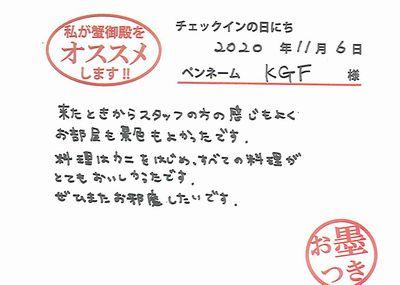 私が蟹御殿を
オススメ
します!!
チェックインの日にち
2020 年 11月 6日
ペンネーム KGF 様
来たときからスタッフの方の感じもよく
お部屋も景色もよかったです。
料理はカニをはじめ、すべての料理が
とてもおいしかったです。
ぜひまたお邪魔したいです。
お墨
つき